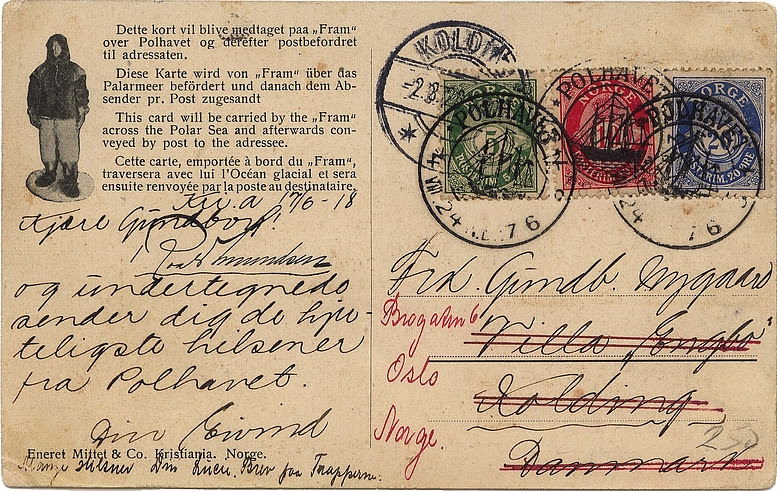 Dette kort vil blive medtaget paa „Fram"
over Polhavet og derefter postbefordret
til adressaten.
Diese Karte wird von „Fram" über das
Palarmeer befördert und danach dem Ab-
sender pr. Post zugesandt
This card will be carried by the „Fram"
across the Polar Sea and afterwards con-
veyed by post to the adressee.
Cette carte, emportée à bord du „Fram",
traversera avec lui l'Océan glacial et sera
ensuite renvoyée par la poste au destinataire.
Kr.a 17/6-18
Kjære Gundbor!
Roald Amundsen
og undertegnede
sender dig de hjer-
teligste hilsener
fra Polhavet.
Din Eivind
Eneret Mittet & Co. Kristiania. Norge.
Mange hilsner Din
Brev faa
KOLDING
NORGE
5
POLHAVET
24 7 6
POLHAVET
NORGE
POLHAVET
24 7 6
Frk. Gundb. Nygaard
Villa „Engbo"
Kolding
Danmark
Brogatan 6
Oslo
Norge.
250